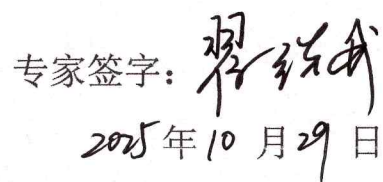 专家签字：
2025年10月29日